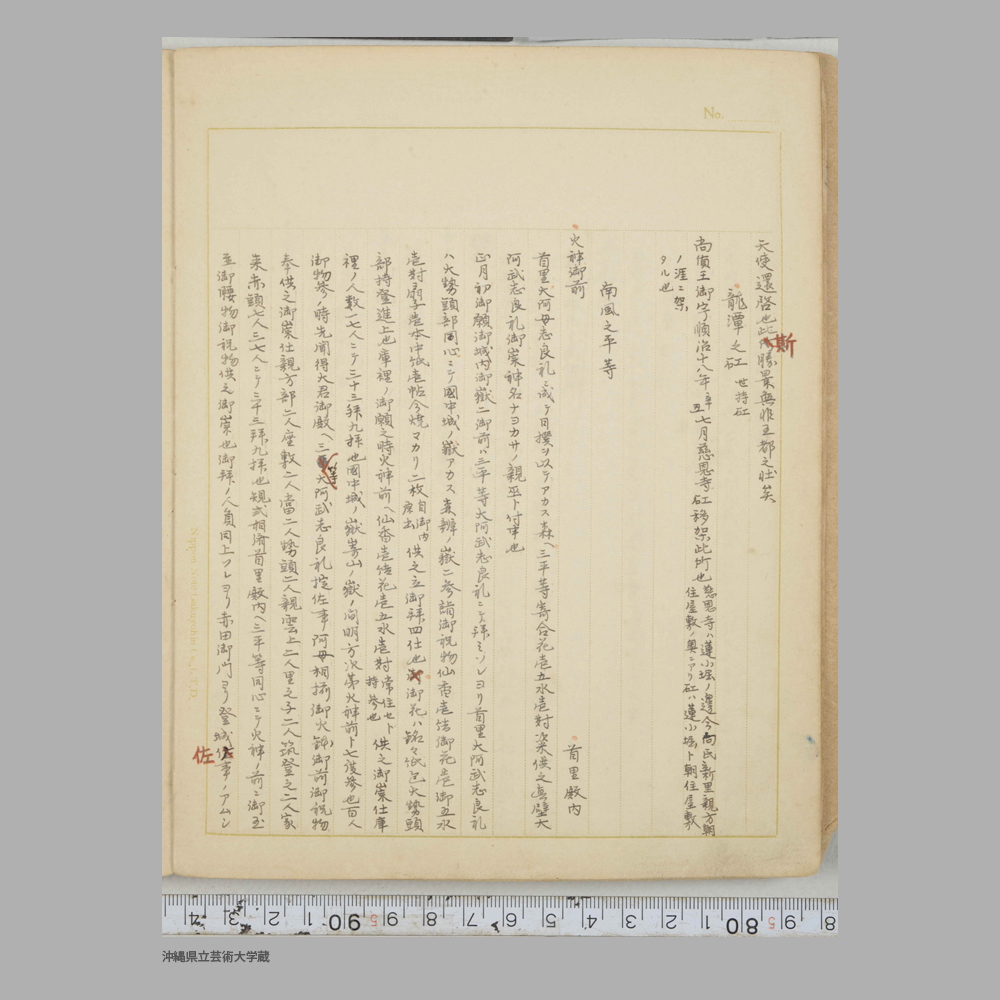 No.
天使還啓也此斯勝景無非王都之壮矣
龍潭之矼 世持矼
尚質王御宇順治十八年辛丑七月慈恩寺矼移架此所也 慈恩寺ハ蓮小堀ノ邊今向氏新里親方朝住屋敷ノ奥ニアリ矼ハ蓮小堀ト朝住屋敷
ノ涯ニ架
タル也
南風之平等
火神御前 首里殿内
首里大阿母志良礼ノ成ケ日撰ヲ以テアカス森ヘ三平等寄合花壱五水壱対染供之真壁大
阿武志良礼御崇神名ナヨカサノ親巫ト付事也
正月初御願御城内御嶽ニ御前ハ三平等大阿武志良礼ニテ拝ミソレヨリ首里大阿武志良礼
ハ大勢頭部同心ニテ國中城ノ嶽アカス森辨ノ嶽ニ参詣御祝物仙香壱結御花壱御五水
壱対扇子壱本中紙壱帖今焼マカリ二枚自御内原出供之立御拝四仕也御花ハ銘々紙包大勢頭
部持登進上也庫裡ノ御願之時火神前ヘ仙香壱結花壱五水壱対常住セト持参也供之御崇仕庫
裡ノ人数一七人ニテ三十三拝九拝也國中城ノ嶽嵩山ノ嶽ノ向明方次第火神前ト七度参也百人
御物参ノ時先聞得大君御殿ヘ三平等大阿武志良礼掟佐事阿母相揃御火鉢御前御祝物
奉供之御崇仕親方部二人座敷二人當二人勢頭二人親雲上二人里之子二人筑登之二人家
来赤頭七人二七人ニテ三十三拝九拝也規式相済首里殿内ヘ三平等同心ニテ火神ノ前ニ御玉
圭御腰物御祝物供之御崇也御拝ノ人員同上ソレヨリ赤田御門ヨリ登城佐事ノアムシ
佐
Nippon Shiryōtoyōshiho Co., LTD.
4 3 2 1 90 9 8 7 6 5 4 3 2 1 80 9 8
沖縄県立芸術大学蔵